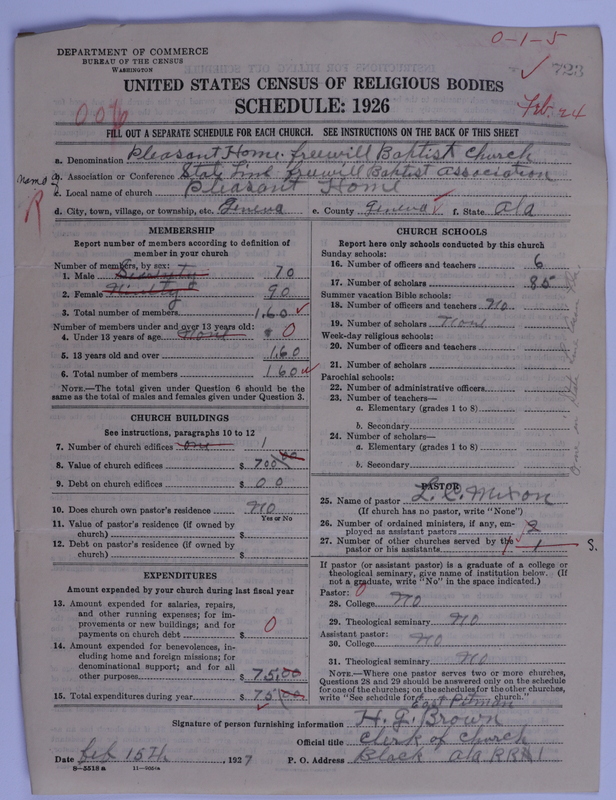 0-1-5
DEPARTMENT OF COMMERCE
BUREAU OF THE CENSUS
WASHINGTON
723
UNITED STATES CENSUS OF RELIGIOUS BODIES
SCHEDULE: 1926
Feb. 24
006
FILL OUT A SEPARATE SCHEDULE FOR EACH CHURCH. SEE INSTRUCTIONS ON THE BACK OF THIS SHEET
a. Denomination Pleasant Home freewill Baptist church
b. Association or Conference State Line freewill Baptist association
c. Local name of church Pleasant Home
R
d. City, town, village, or township, etc. Geneva e. County Geneva f. State Ala
MEMBERSHIP
Report number of members according to definition of
member in your church
Number of members, by sex:
1. Male Seventy 70
2. Female Ninety 90
3. Total number of members 160
Number of members under and over 13 years old:
4. Under 13 years of age None 0
5. 13 years old and over 160
6. Total number of members 160
NOTE.—The total given under Question 6 should be the
same as the total of males and females given under Question 3.
CHURCH BUILDINGS
See instructions, paragraphs 10 to 12
7. Number of church edifices one 1
8. Value of church edifices $ 700 00
9. Debt on church edifices $ 00
10. Does church own pastor's residence NO
Yes or No
11. Value of pastor's residence (if owned by
church) $
12. Debt on pastor's residence (if owned by
church) $
EXPENDITURES
Amount expended by your church during last fiscal year
13. Amount expended for salaries, repairs,
and other running expenses; for im-
provements or new buildings; and for
payments on church debt $ 0
14. Amount expended for benevolences, in-
cluding home and foreign missions; for
denominational support; and for all
other purposes $ 75.00
15. Total expenditures during year $ 75.00
CHURCH SCHOOLS
Report here only schools conducted by this church
Sunday schools:
16. Number of officers and teachers 6
17. Number of scholars 85
Summer vacation Bible schools:
18. Number of officers and teachers No
19. Number of scholars None
Week-day religious schools:
20. Number of officers and teachers
21. Number of scholars
Parochial schools:
22. Number of administrative officers
23. Number of teachers—
a. Elementary (grades 1 to 8)
b. Secondary
24. Number of scholars—
a. Elementary (grades 1 to 8)
b. Secondary
PASTOR
25. Name of pastor L. C. Mixon
(If church has no pastor, write "None")
26. Number of ordained ministers, if any, em-
ployed as assistant pastors 2
27. Number of other churches served by the
pastor or his assistants 1 S.
If pastor (or assistant pastor) is a graduate of a college or
theological seminary, give name of institution below. (If
not a graduate, write "No" in the space indicated.)
Pastor: 0
28. College NO
29. Theological seminary NO
Assistant pastor:
30. College NO
31. Theological seminary NO
NOTE.—Where one pastor serves two or more churches,
Questions 28 and 29 should be answered only on the schedule
for one of the churches; on the schedules for the other churches,
write "See schedule for East Pitman church."
Signature of person furnishing information H. G. Brown
Official title Clerk of church
Date Feb 15th, 1927 P. O. Address Black Ala RR#1
8-5518a